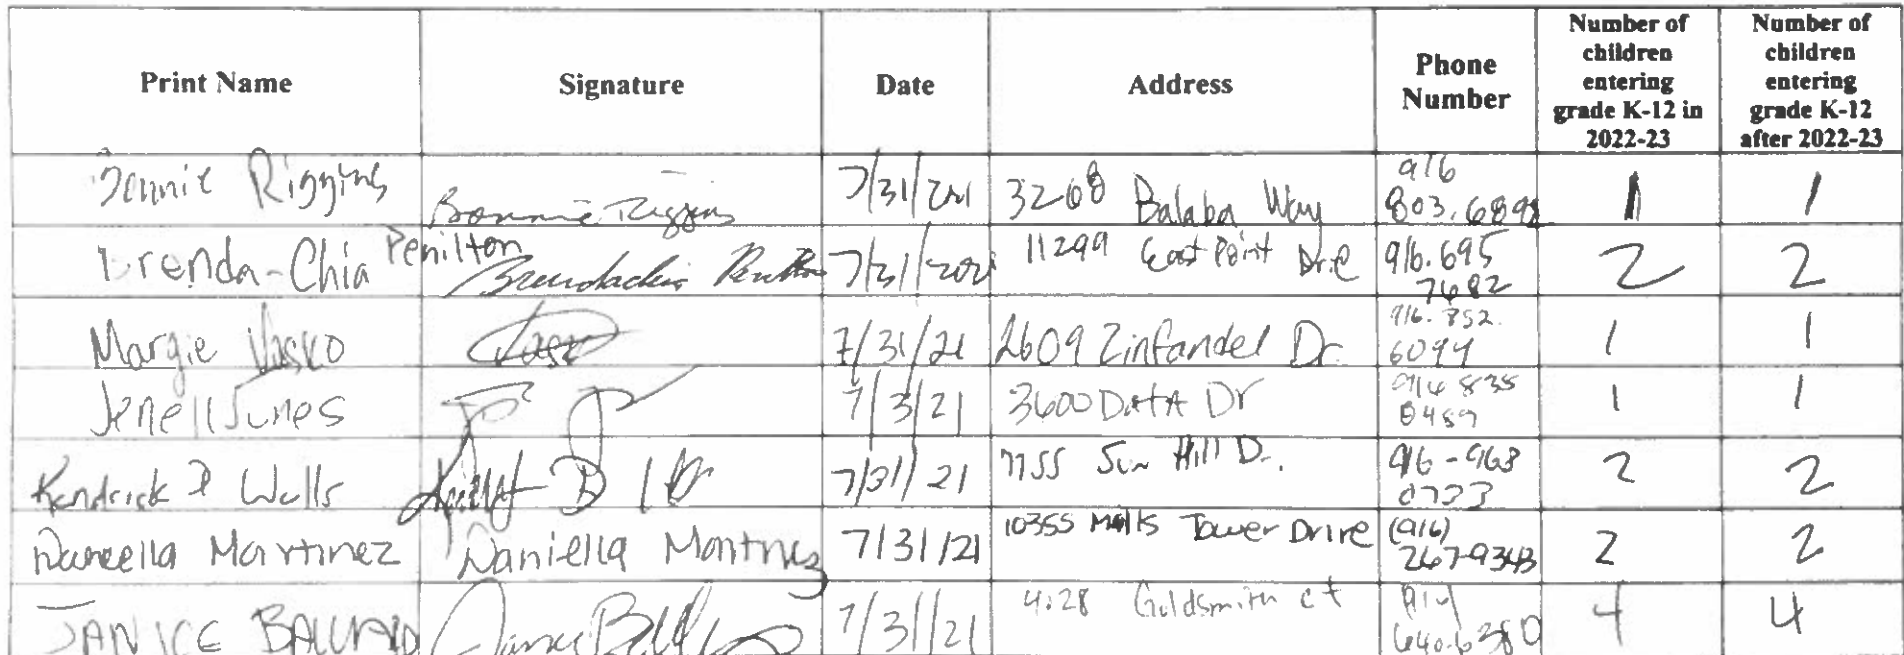 Print Name Signature Date Address Phone Number Number of children entering grade K-12 in 2022-23 Number of children entering grade K-12 after 2022-23
Riggins Bonnie Riggins 7/31/2021 3268 Balaba Way 916 803.6898 1 1
Brenda-Chia Penilton 7/31/2021 11299 East Point Drive 916.695 7682 2 2
Margie Vasko Vasko 7/31/21 2609 Zinfandel Dr. 916. 852. 6094 1 1
Jenell Jones 7/31/21 3600 Data Dr 916 835 0489 1 1
Kendrick D Wells 7/31/21 Sun Hill Dr. 916-963 0733 2 2
Martinez Daniella Martinez 7/31/21 10355 Mills Tower Drive (916) 267-9343 2 2
JANICE BALLARD Janice 7/31/21 Goldsmith ct 916 640.6380 4 4